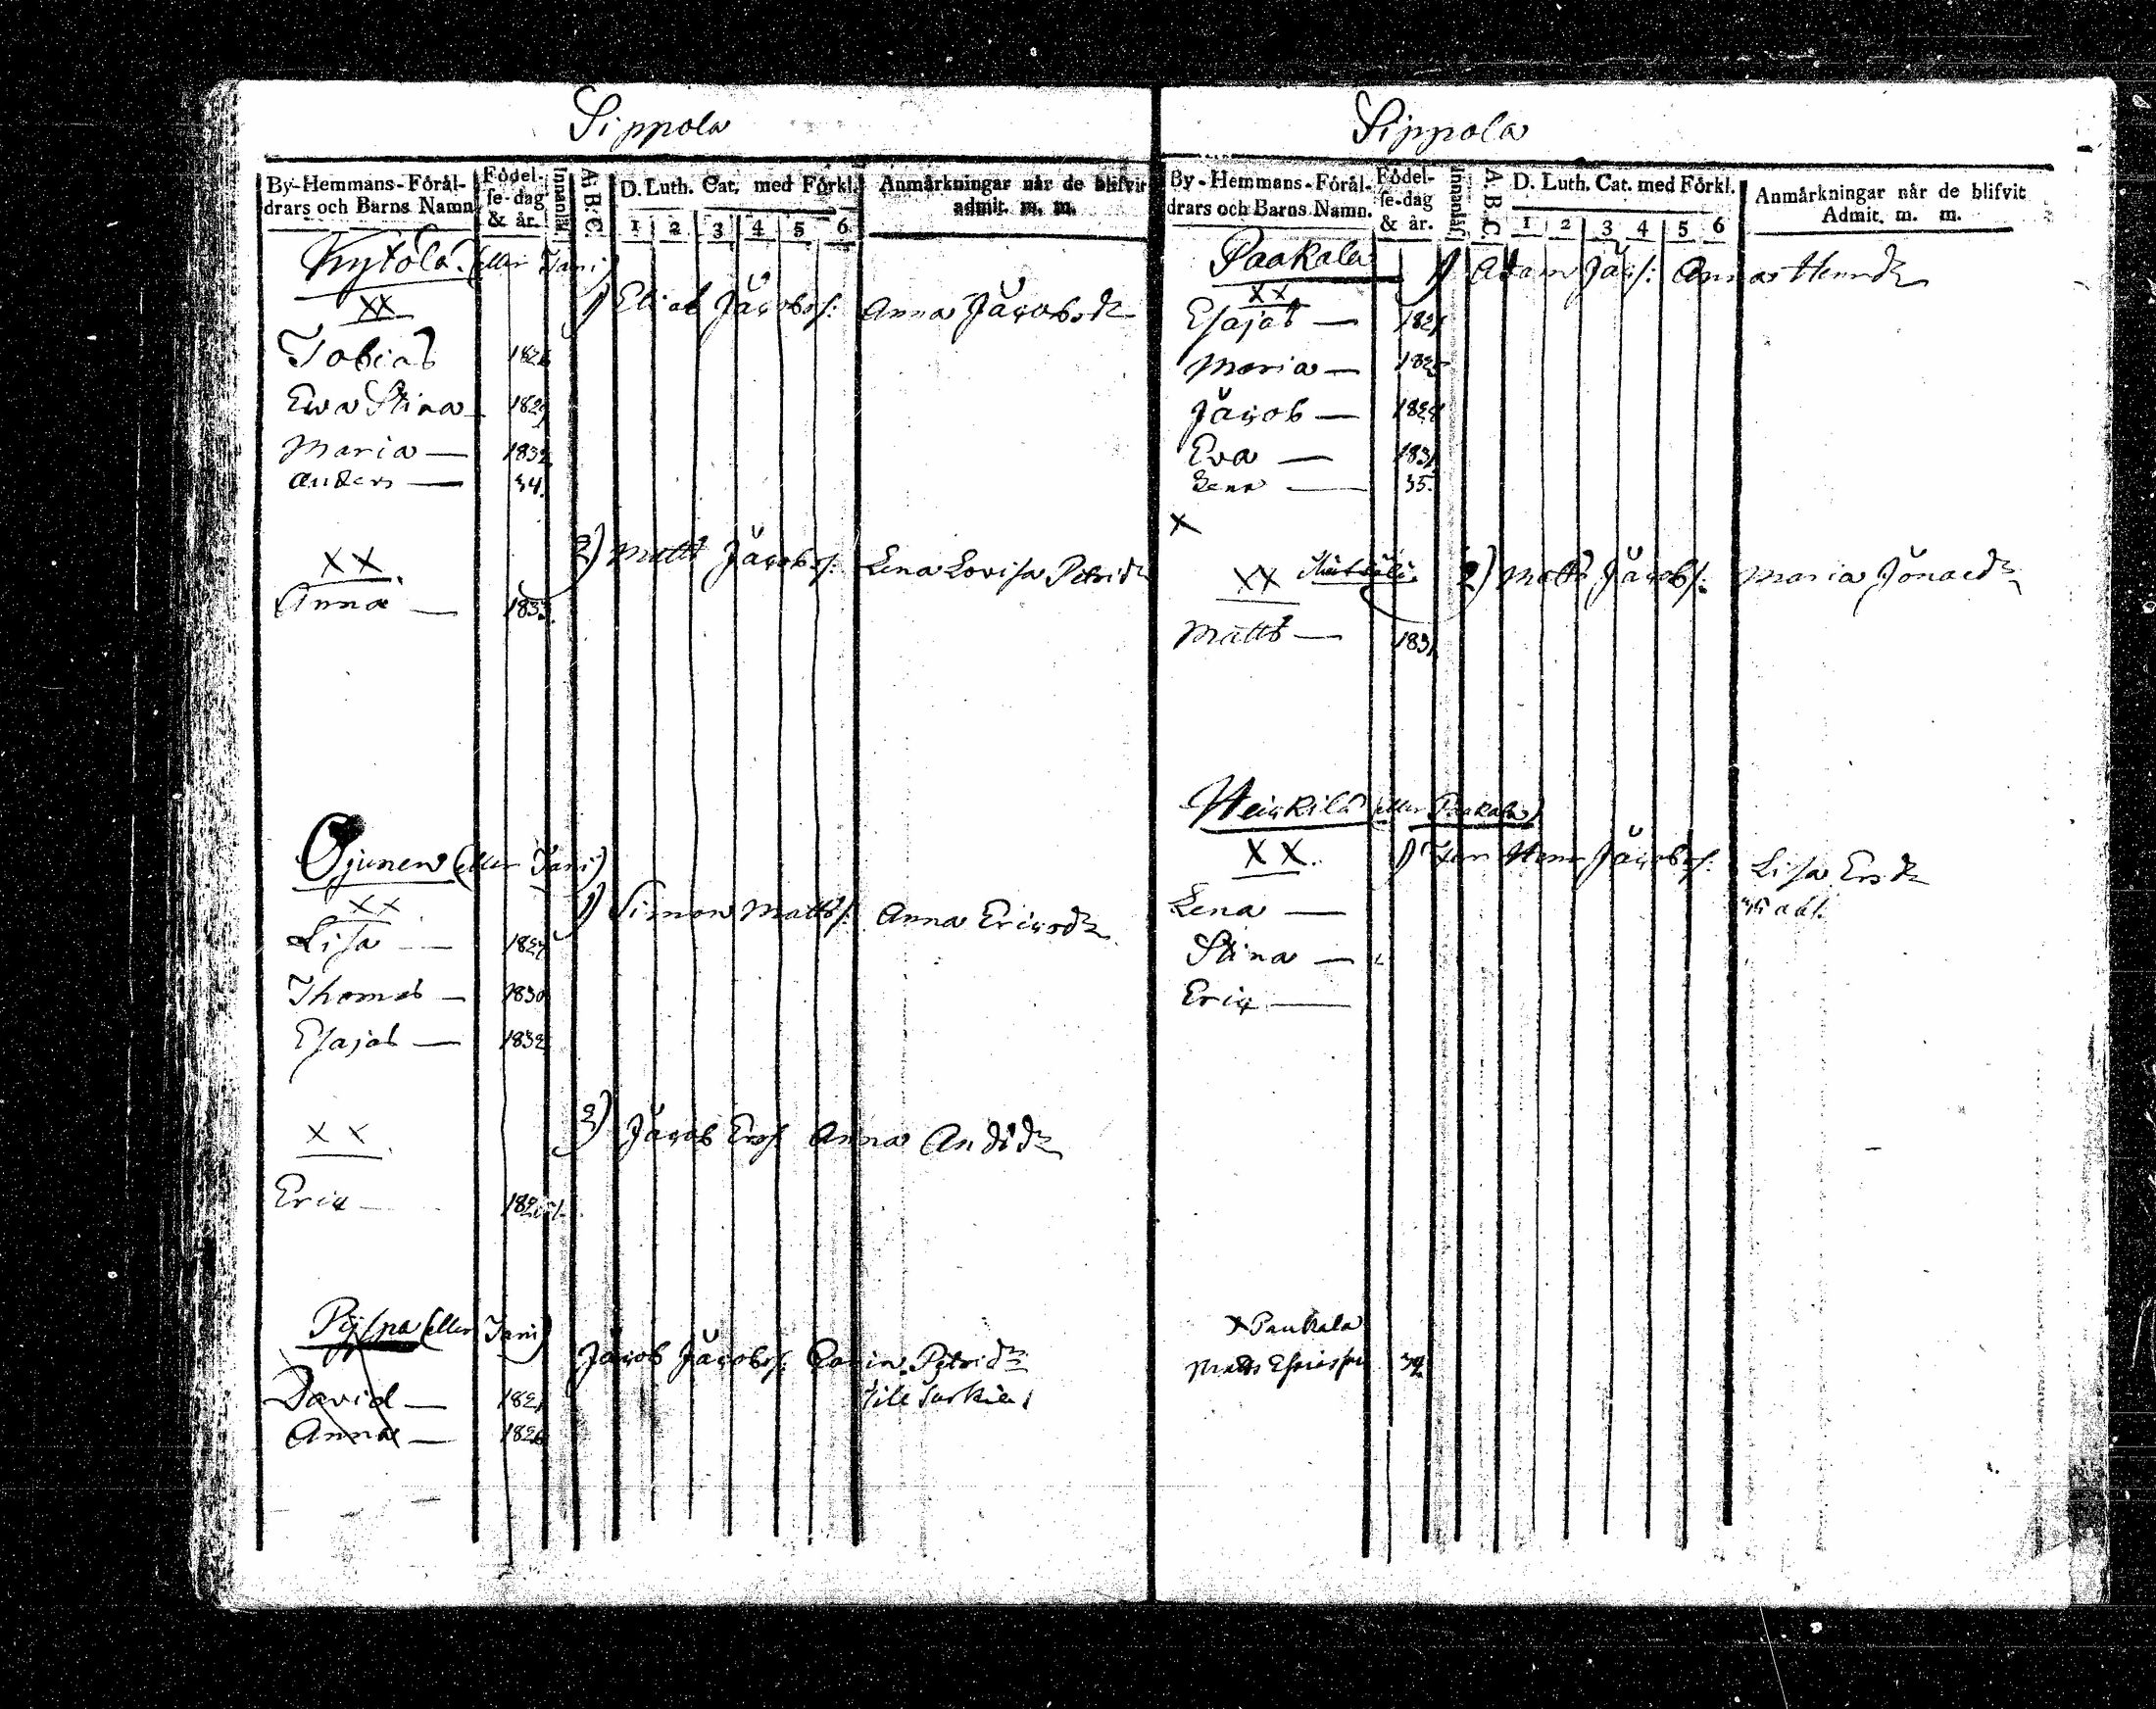 Sippola
By-Hemmans-Föräl-
drars och Barns Namn
Födel-
se-dag
& år.
Innanläs
A. B. C.
D. Luth. Cat. med Förkl.
1 2 3 4 5 6
Anmärkningar när de blifvit
admit. m. m.
Kytölä (eller Jani)
XX
1) Elias Jacobss: Anna Jacobsdr
Tobias 182
Ewa Stina 1829
Maria — 1832
Anders — 34.
XX
2) Matts Jacobss: Lena Lovisa Petridr
Anna — 1833.
Ojunen (eller Jani)
XX
1) Simon Mattss: Anna Ericsdr
Lisa — 1827
Thomas — 1830
Esajas — 1832
XX
2) Jacob Ersss Anna Andsdr
Eric —
(eller Jani)
Jacob Jacobss: Carin Petridr
till
David — 1821
Anna — 1826
Sippola
By-Hemmans-Föräl-
drars och Barns Namn.
Födel-
se-dag
& år.
Innanläs
A. B. C.
D. Luth. Cat. med Förkl.
1 2 3 4 5 6
Anmärkningar när de blifvit
Admit. m. m.
Paakala
1) Adam Jacs: Anna Henrdr
XX
Esajas — 1821
Maria — 1825
Jacob — 1828
Eva — 1831
Lena — 35.
X
XX
2) Matts Jacobs: Maria Jönaedr
Matts — 1831
Heickilä (eller Paakala)
XX.
1) Henr Jacobss: Lisa Ersdr
Lena —
Stina —
Eric —
X Paukala
Matts 32